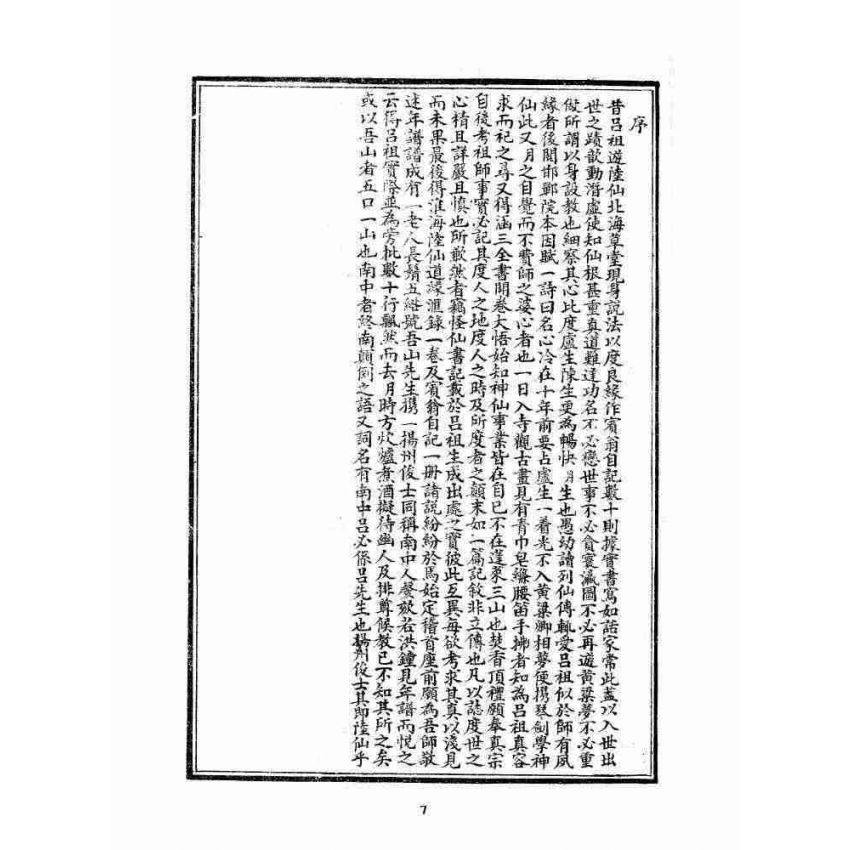 序
昔呂祖遊陸仙北海草堂現身說法以度良緣作賓翁自記數十則據實書寫如話家常此蓋以入世出
世之蹟歆動潛虛使知仙根甚重真道難逢功名不必戀世事不必貪寰瀛圖不必再遊黃粱夢不必重
做所謂以身設教也細察其心比度盧生陳生更為暢快月生也愚幼讀列仙傳輒愛呂祖似於師有夙
緣者後閱邯鄲院本因賦一詩曰名心冷在十年前要占盧生一着先不入黃粱卿相夢便携琴劍學神
仙此又月之自覺而不費師之婆心者也一日入寺觀古畫見有青巾皂縧腰笛手拂者知為呂祖真容
求而祀之尋又得涵三全書開卷大悟始知神仙事業皆在自己不在蓬萊三山也焚香頂禮願奉真宗
自後考祖師事實必記其度人之地度人之時及所度者之顛末如一篇記敘非立傳也凡以誌度世之
心精且詳嚴且慎也所歉然者竊怪仙書記載於呂祖生成出處之實彼此互異每欲考求其真以淺見
而未果最後得淮海陸仙道緣滙錄一卷及賓翁自記一冊諸說紛紛於焉始定稽首座前願為吾師敬
述年譜譜成有一老人長鬚五綹號吾山先生携一揚州俊士同稱南中人謦欬若洪鐘見年譜而悅之
云得呂祖實際並為旁批數十行飄然而去月時方炊爐煮酒擬待幽人及排尊候教已不知其所之矣
或以吾山者五口一山也南中者終南顛倒之語又詞名有南中呂必係呂先生也揚州俊士其即陸仙乎
7